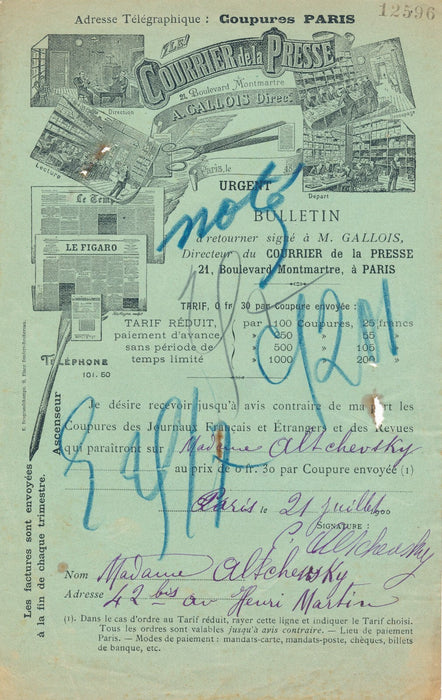 Adresse Télégraphique : Coupures PARIS
12596
"LE"
COURRIER de la PRESSE
21, Boulevard Montmartre
A. GALLOIS Direc.
Direction
Lecture
Départ
Paris, le
URGENT
noté
BULLETIN
à retourner signé à M. GALLOIS,
Directeur du COURRIER de la PRESSE
21, Boulevard Montmartre, à PARIS
LE FIGARO
TÉLÉPHONE
101.50
TARIF, 0 fr. 30 par Coupure envoyée :
TARIF RÉDUIT,
paiement d'avance
sans période de
temps limité
par 100 Coupures, 25 francs
» 250 » 55 »
» 500 » 105 »
» 1000 » 200 »
Ascenseur
Les factures sont envoyées
à la fin de chaque trimestre.
Je désire recevoir jusqu'à avis contraire de ma part les
Coupures des Journaux Français et Étrangers et des Revues
qui paraîtront sur Madame Altchevsky
au prix de 0 fr. 30 par Coupure envoyée (1)
Paris le 21 juillet 1900
SIGNATURE :
C. Altchevsky
Nom Madame Altchevsky
Adresse 42 bis av Henri Martin
(1). Dans le cas d'ordre au Tarif réduit, rayer cette ligne et indiquer le Tarif choisi.
Tous les ordres sont valables jusqu'à avis contraire. — Lieu de paiement
Paris. — Modes de paiement : mandats-carte, mandats-poste, chèques, billets
de banque, etc.